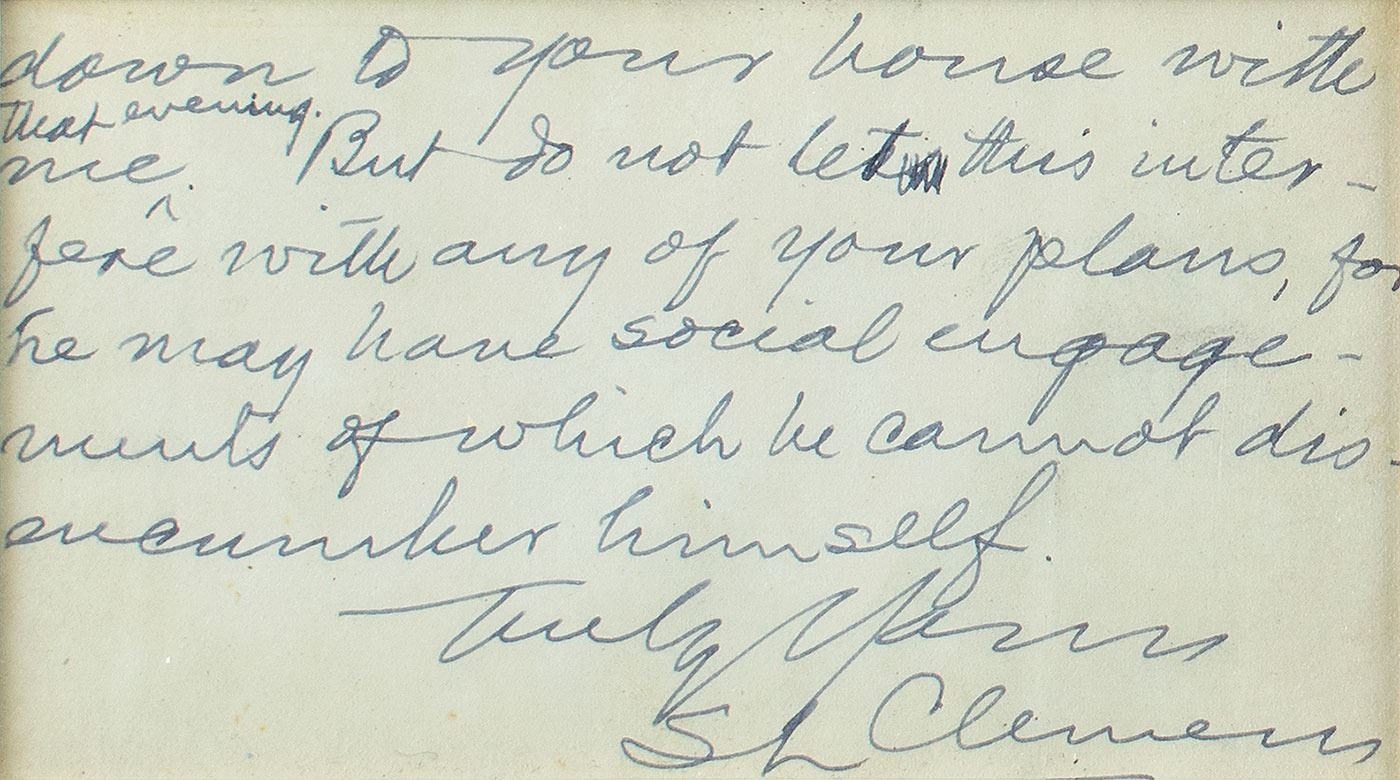 down to your house with
that evening.
me. But do not let this inter-
fere with any of your plans, for
he may have social engage-
ments of which he cannot dis-
encumber himself.
Truly Yours
S L Clemens